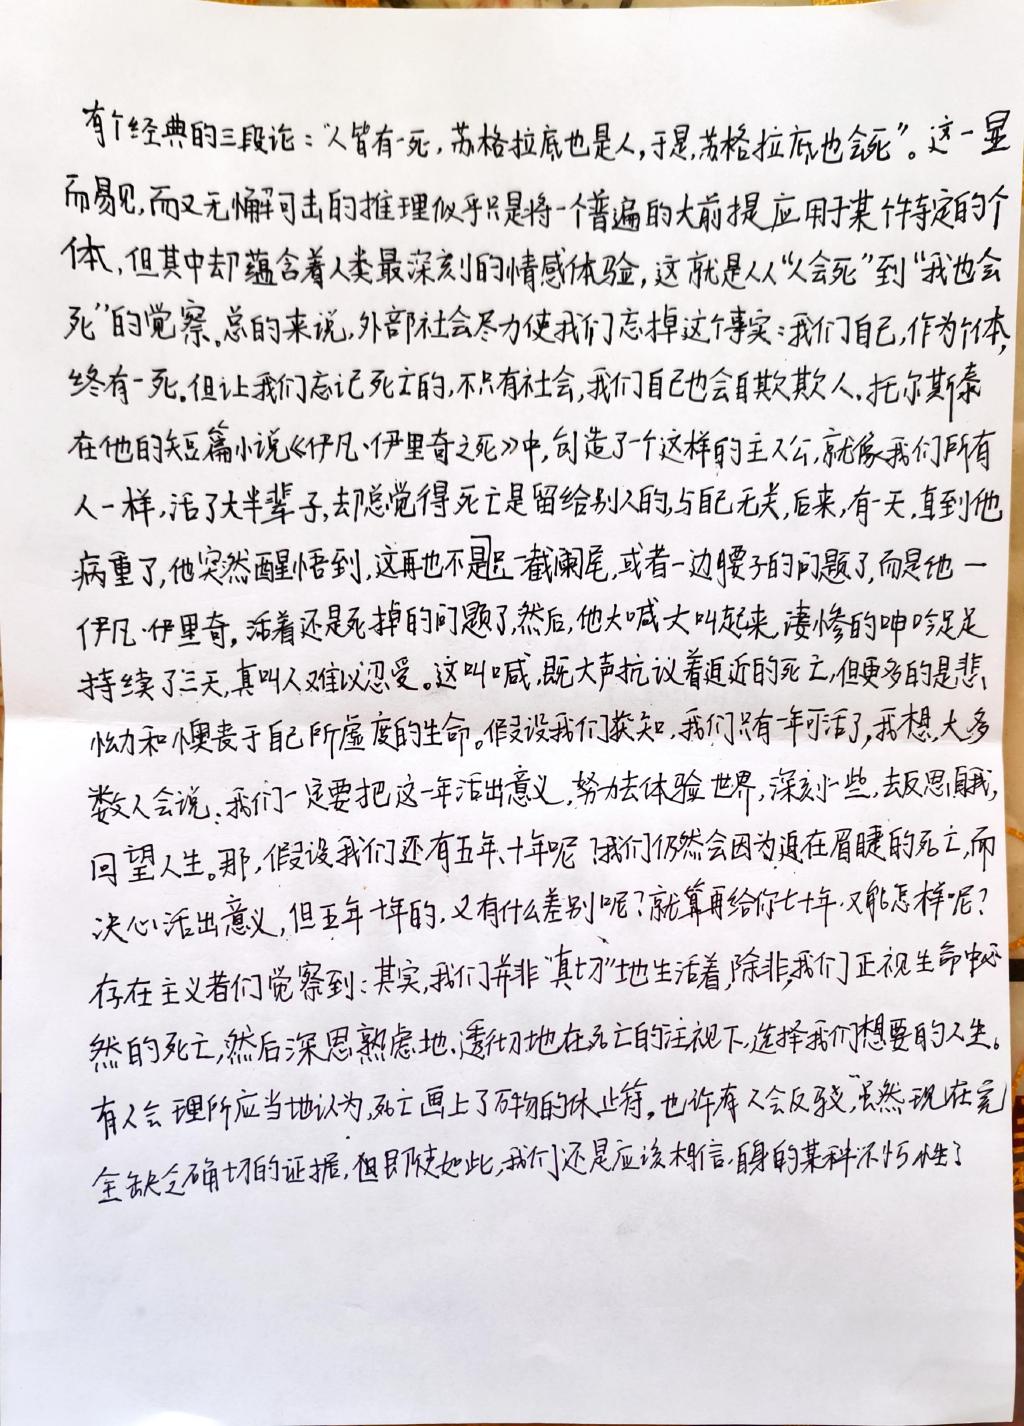 有个经典的三段论：“人皆有一死，苏格拉底也是人，于是，苏格拉底也会死”。这一显
而易见，而又无懈可击的推理似乎只是将一个普遍的大前提应用于某个特定的个
体，但其中却蕴含着人类最深刻的情感体验，这就是从“人会死”到“我也会
死”的觉察。总的来说，外部社会尽力使我们忘掉这个事实：我们自己，作为个体，
终有一死。但让我们忘记死亡的，不只有社会，我们自己也会自欺欺人。托尔斯泰
在他的短篇小说《伊凡·伊里奇之死》中，创造了一个这样的主人公，就像我们所有
人一样，活了大半辈子，却总觉得死亡是留给别人的，与自己无关，后来，有一天，直到他
病重了，他突然醒悟到，这再也不是一截阑尾，或者一边腰子的问题了，而是他一
伊凡·伊里奇，活着还是死掉的问题了，然后，他大喊大叫起来，凄惨的呻吟足足
持续了三天，真叫人难以忍受。这叫喊，既大声抗议着迫近的死亡，但更多的是悲、
恸和懊丧于自己所虚度的生命。假设我们获知，我们只有一年可活了，我想，大多
数人会说，我们一定要把这一年活出意义，努力去体验世界，深刻一些，去反思自我，
回望人生。那，假设我们还有五年、十年呢？我们仍然会因为迫在眉睫的死亡，而
决心活出意义，但五年十年的，又有什么差别呢？就算再给你七十年，又能怎样呢？
存在主义者们觉察到：其实，我们并非“真切”地生活着，除非，我们正视生命中必
然的死亡，然后深思熟虑地、透彻地在死亡的注视下，选择我们想要的人生。
有人会理所应当地认为，死亡画上了万物的休止符。也许有人会反驳，“虽然现在完
全缺乏确切的证据，但即使如此，我们还是应该相信自身的某种不朽性了